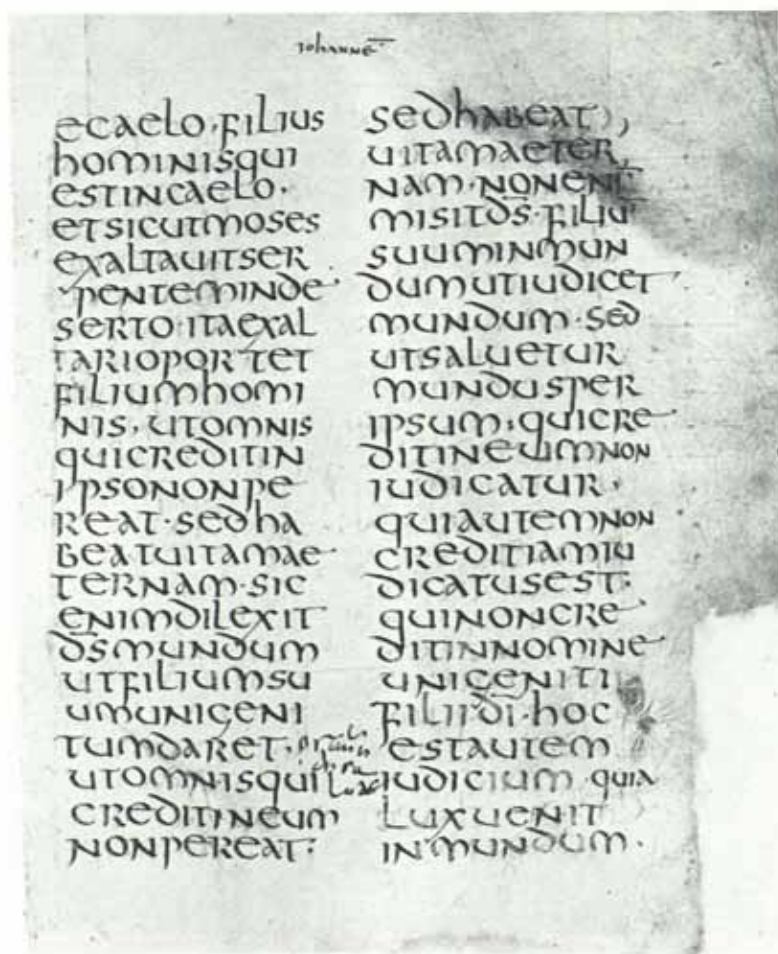 iohanne̅
ecaelo·filius
hominisqui
estincaelo·
etsicutmoses
exaltauitser
penteminde
serto·itaexal
tarioportet
filiumhomi
nis·utomnis
quicreditin
ipsononpe
reat·sedha
beatuitamae
ternam·sic
enimdilexit
d̅s̅mundum
utfiliumsu
umunigeni
tumdaret·
utomnisqui
creditineum
nonpereat:
sedhabeat
uitamaeter
nam·noneni̅
misitd̅s̅·filiu̅
suuminmun
dumutiudicet
mundum·sed
utsaluetur
mundusper
ipsum·quicre
ditineumnon
iudicatur·
quiautemnon
creditiamiu
dicatusest:
quinoncre
ditinnomine
unigeniti
filiid̅i̅·hoc
estautem
iudicium·quia
luxuenit
inmundum·